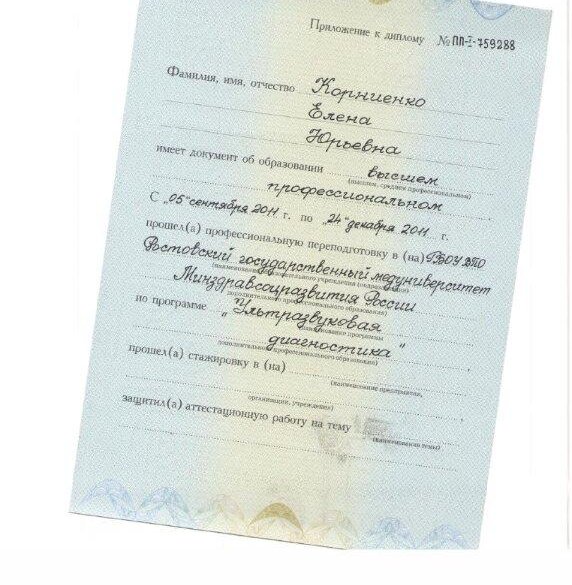 Приложение к диплому № ПП-I-759288
Фамилия, имя, отчество Корниенко
Елена
Юрьевна
имеет документ об образовании высшем
(высшем, среднем профессиональном)
профессиональном
С „05" сентября 2011 г. по „24" декабря 2011 г.
прошел(а) профессиональную переподготовку в (на) ГБОУ ВПО
Ростовский государственный медуниверситет
(наименование образовательного учреждения (подразделения)
Минздравсоцразвития России
дополнительного профессионального образования)
по программе „Ультразвуковая
(наименование программы
диагностика"
дополнительного профессионального образования)
прошел(а) стажировку в (на)
(наименование предприятия,
организации, учреждения)
защитил(а) аттестационную работу на тему
(наименование темы)